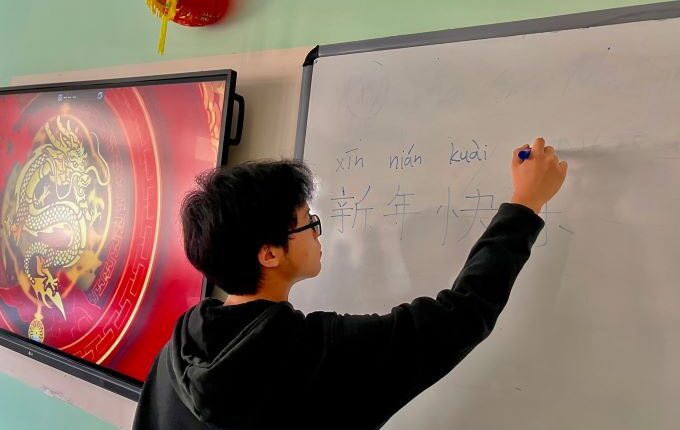 xīn nián kuài
新年快